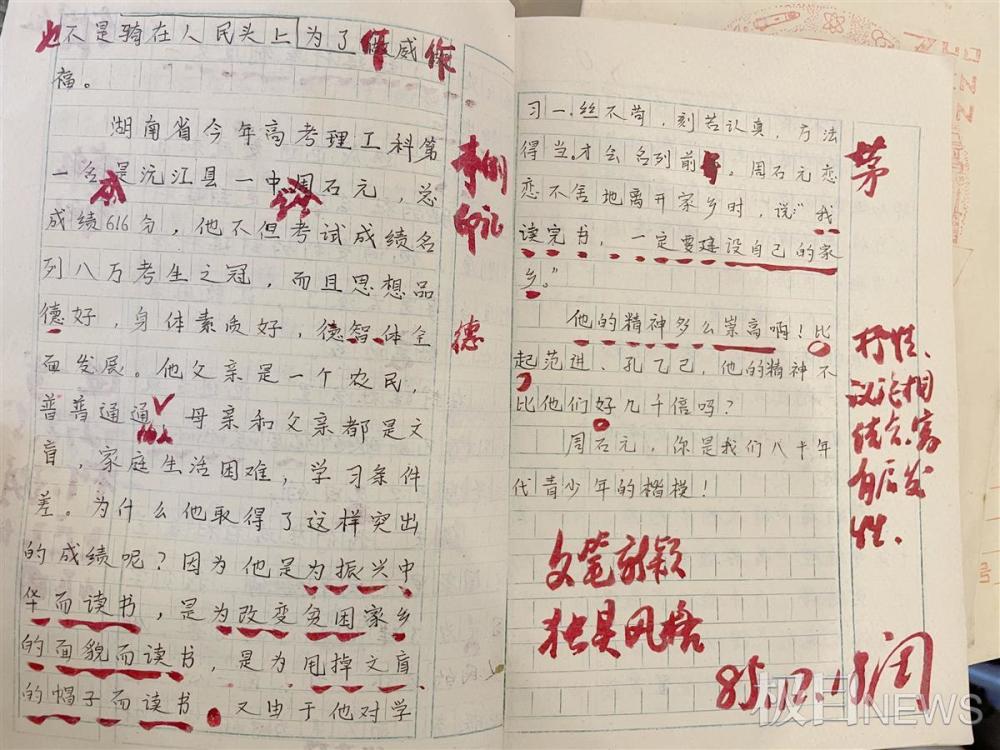 也不是骑在人民头上为了作威作
福。
湖南省今年高考理工科第
一名是沅江县一中周石元,总
成绩616分,他不但考试成绩名
列八万考生之冠,而且思想品
德好,身体素质好,德智体全
面发展。他父亲是一个农民,
普普通通 母亲和父亲都是文
盲,家庭生活困难,学习条件
差。为什么他取得了这样突出
的成绩呢?因为他是为振兴中
华而读书,是为改变贫困家乡
的面貌而读书,是为甩掉文盲
的帽子而读书。又由于他对学
德
习一丝不苟,刻苦认真,方法
得当。才会名列前茅。周石元恋
恋不舍地离开家乡时,说:“我
读完书,一定要建设自己的家
乡。”
他的精神多么崇高啊!比
起范进、孔乙己,他的精神不
比他们好几千倍吗?
周石元,你是我们八十年
代青少年的楷模!
茅
议论相
结合,富
有启发
性.
文笔新颖
独具风格
85.12.18阅
极目NEWS